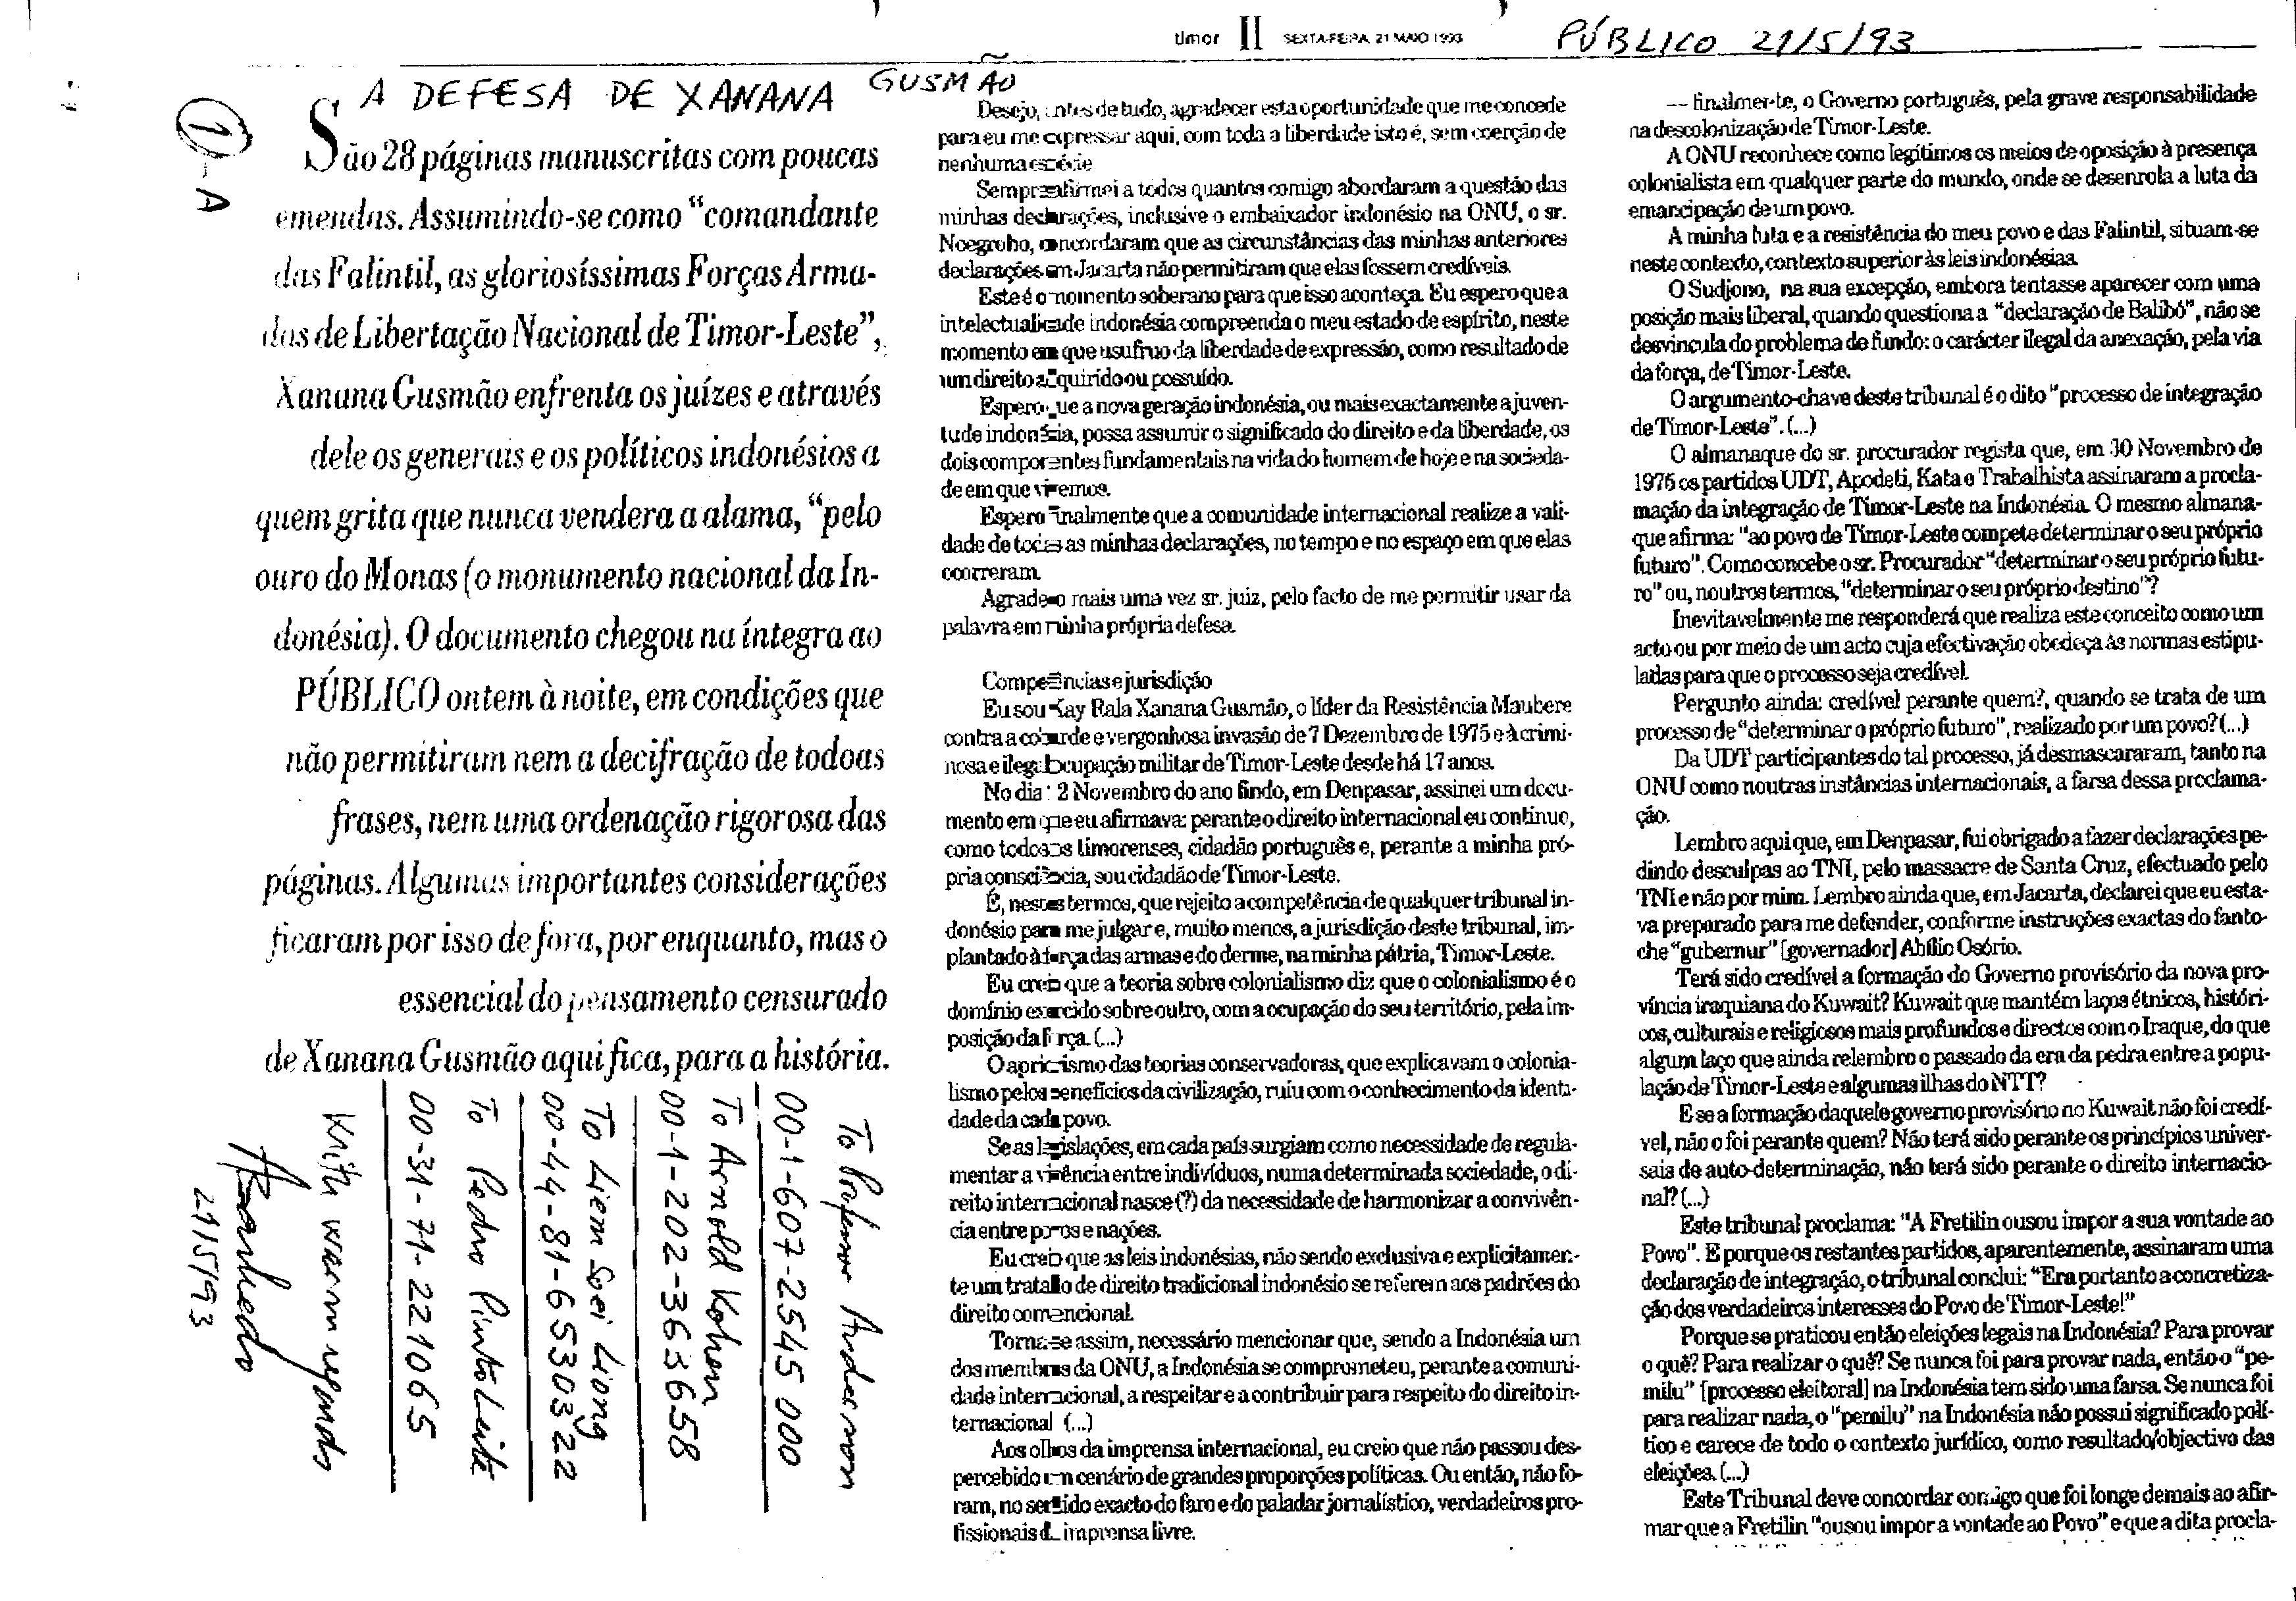 timor II SEXTA-FEIRA, 21 MAIO 1993
PÚBLICO 21/5/93
A DEFESA DE XANANA GUSMÃO
1-A
São 28 páginas manuscritas com poucas
emendas. Assumindo-se como "comandante
das Falintil, as gloriosíssimas Forças Arma-
das de Libertação Nacional de Timor-Leste",
Xanana Gusmão enfrenta os juízes e através
dele os generais e os políticos indonésios a
quem grita que nunca vendera a alama, "pelo
ouro do Monas (o monumento nacional da In-
donésia). O documento chegou na íntegra ao
PÚBLICO ontem à noite, em condições que
não permitiram nem a decifração de todoas
frases, nem uma ordenação rigorosa das
páginas. Algumas importantes considerações
ficaram por isso de fora, por enquanto, mas o
essencial do pensamento censurado
de Xanana Gusmão aqui fica, para a história.
To Professor Anderson
00-1-607-2545 000
To Arnold Kohen
00-1-202-3636658
To Liem Soei Liong
00-44-81-6530322
To Pedro Pinto Leite
00-31-71-221065
With warm regards
21/5/93
Desejo, antes de tudo, agradecer esta oportunidade que me concede
para eu me expressar aqui, com toda a liberdade isto é, sem coerção de
nenhuma espécie.
Sempre afirmei a todos quantos comigo abordaram a questão das
minhas declarações, inclusive o embaixador indonésio na ONU, o sr.
Noegroho, concordaram que as circunstâncias das minhas anteriores
declarações em Jacarta não permitiram que elas fossem credíveis.
Este é o momento soberano para que isso aconteça. Eu espero que a
intelectualidade indonésia compreenda o meu estado de espírito, neste
momento em que usufruo da liberdade de expressão, como resultado de
um direito adquirido ou possuído.
Espero que a nova geração indonésia, ou mais exactamente a juven-
tude indonésia, possa assumir o significado do direito e da liberdade, os
dois componentes fundamentais na vida do homem de hoje e na socieda-
de em que vivemos.
Espero finalmente que a comunidade internacional realize a vali-
dade de todas as minhas declarações, no tempo e no espaço em que elas
ocorreram.
Agradeço mais uma vez sr. juiz, pelo facto de me permitir usar da
palavra em minha própria defesa.
Competências e jurisdição
Eu sou Kay Rala Xanana Gusmão, o líder da Resistência Maubere
contra a cobarde e vergonhosa invasão de 7 Dezembro de 1975 e à crimi-
nosa e ilegal ocupação militar de Timor-Leste desde há 17 anos.
No dia 2 Novembro do ano findo, em Denpasar, assinei um docu-
mento em que eu afirmava: perante o direito internacional eu continuo,
como todos os timorenses, cidadão português e, perante a minha pró-
pria consciência, sou cidadão de Timor-Leste.
É, nestes termos, que rejeito a competência de qualquer tribunal in-
donésio para me julgar e, muito menos, a jurisdição deste tribunal, im-
plantado à força das armas e do derme, na minha pátria, Timor-Leste.
Eu creio que a teoria sobre colonialismo diz que o colonialismo é o
domínio exercido sobre outro, com a ocupação do seu território, pela im-
posição da força. (...)
O apriorismo das teorias conservadoras, que explicavam o colonia-
lismo pelos benefícios da civilização, ruiu com o conhecimento da identi-
dade da cada povo.
Se as legislações, em cada país surgiam como necessidade de regula-
mentar a vivência entre indivíduos, numa determinada sociedade, o di-
reito internacional nasce (?) da necessidade de harmonizar a convivên-
cia entre povos e nações.
Eu creio que as leis indonésias, não sendo exclusiva e explicitamen-
te um tratado de direito tradicional indonésio se referem aos padrões do
direito convencional.
Torna-se assim, necessário mencionar que, sendo a Indonésia um
dos membros da ONU, a Indonésia se comprometeu, perante a comuni-
dade internacional, a respeitar e a contribuir para respeito do direito in-
ternacional (...)
Aos olhos da imprensa internacional, eu creio que não passou des-
percebido um cenário de grandes proporções políticas. Ou então, não fo-
ram, no sentido exacto do faro e do paladar jornalístico, verdadeiros pro-
fissionais da imprensa livre.
— finalmente, o Governo português, pela grave responsabilidade
na descolonização de Timor-Leste.
A ONU reconhece como legítimos os meios de oposição à presença
colonialista em qualquer parte do mundo, onde se desenrola a luta da
emancipação de um povo.
A minha luta e a resistência do meu povo e das Falintil, situam-se
neste contexto, contexto superior às leis indonésias.
O Sudjono, na sua excepção, embora tentasse aparecer com uma
posição mais liberal, quando questiona a "declaração de Balibó", não se
desvincula do problema de fundo: o carácter ilegal da anexação, pela via
da força, de Timor-Leste.
O argumento-chave deste tribunal é o dito "processo de integração
de Timor-Leste". (...)
O almanaque do sr. procurador regista que, em 30 Novembro de
1975 os partidos UDT, Apodeti, Kata e Trabalhista assinaram a procla-
mação da integração de Timor-Leste na Indonésia. O mesmo almana-
que afirma: "ao povo de Timor-Leste compete determinar o seu próprio
futuro". Como concebe o sr. Procurador "determinar o seu próprio futu-
ro" ou, noutros termos, "determinar o seu próprio destino"?
Inevitavelmente me responderá que realiza este conceito como um
acto ou por meio de um acto cuja efectivação obedeça às normas estipu-
ladas para que o processo seja credível.
Pergunto ainda: credível perante quem?, quando se trata de um
processo de "determinar o próprio futuro", realizado por um povo? (...)
Da UDT participantes do tal processo, já desmascararam, tanto na
ONU como noutras instâncias internacionais, a farsa dessa proclama-
ção.
Lembro aqui que, em Denpasar, fui obrigado a fazer declarações pe-
dindo desculpas ao TNI, pelo massacre de Santa Cruz, efectuado pelo
TNI e não por mim. Lembro ainda que, em Jacarta, declarei que eu esta-
va preparado para me defender, conforme instruções exactas do fanto-
che "gubernur" [governador] Abílio Osório.
Terá sido credível a formação do Governo provisório da nova pro-
víncia iraquiana do Kuwait? Kuwait que mantém laços étnicos, históri-
cos, culturais e religiosos mais profundos e directos com o Iraque, do que
algum laço que ainda relembro o passado da era da pedra entre a popu-
lação de Timor-Leste e algumas ilhas do NTT?
E se a formação daquele governo provisório no Kuwait não foi credí-
vel, não o foi perante quem? Não terá sido perante os princípios univer-
sais de auto-determinação, não terá sido perante o direito internacio-
nal? (...)
Este tribunal proclama: "A Fretilin ousou impor a sua vontade ao
Povo". E porque os restantes partidos, aparentemente, assinaram uma
declaração de integração, o tribunal conclui: "Era portanto a concretiza-
ção dos verdadeiros interesses do Povo de Timor-Leste!"
Porque se praticou então eleições legais na Indonésia? Para provar
o quê? Para realizar o quê? Se nunca foi para provar nada, então o "pe-
milu" [processo eleitoral] na Indonésia tem sido uma farsa. Se nunca foi
para realizar nada, o "pemilu" na Indonésia não possui significado polí-
tico e carece de todo o contexto jurídico, como resultado/objectivo das
eleições. (...)
Este Tribunal deve concordar comigo que foi longe demais ao afir-
mar que a Fretilin "ousou impor a vontade ao Povo" e que a dita procla-